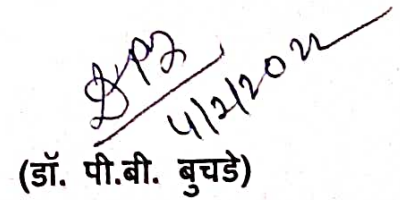 4/2/2022
(डॉ. पी.बी. बुचडे)